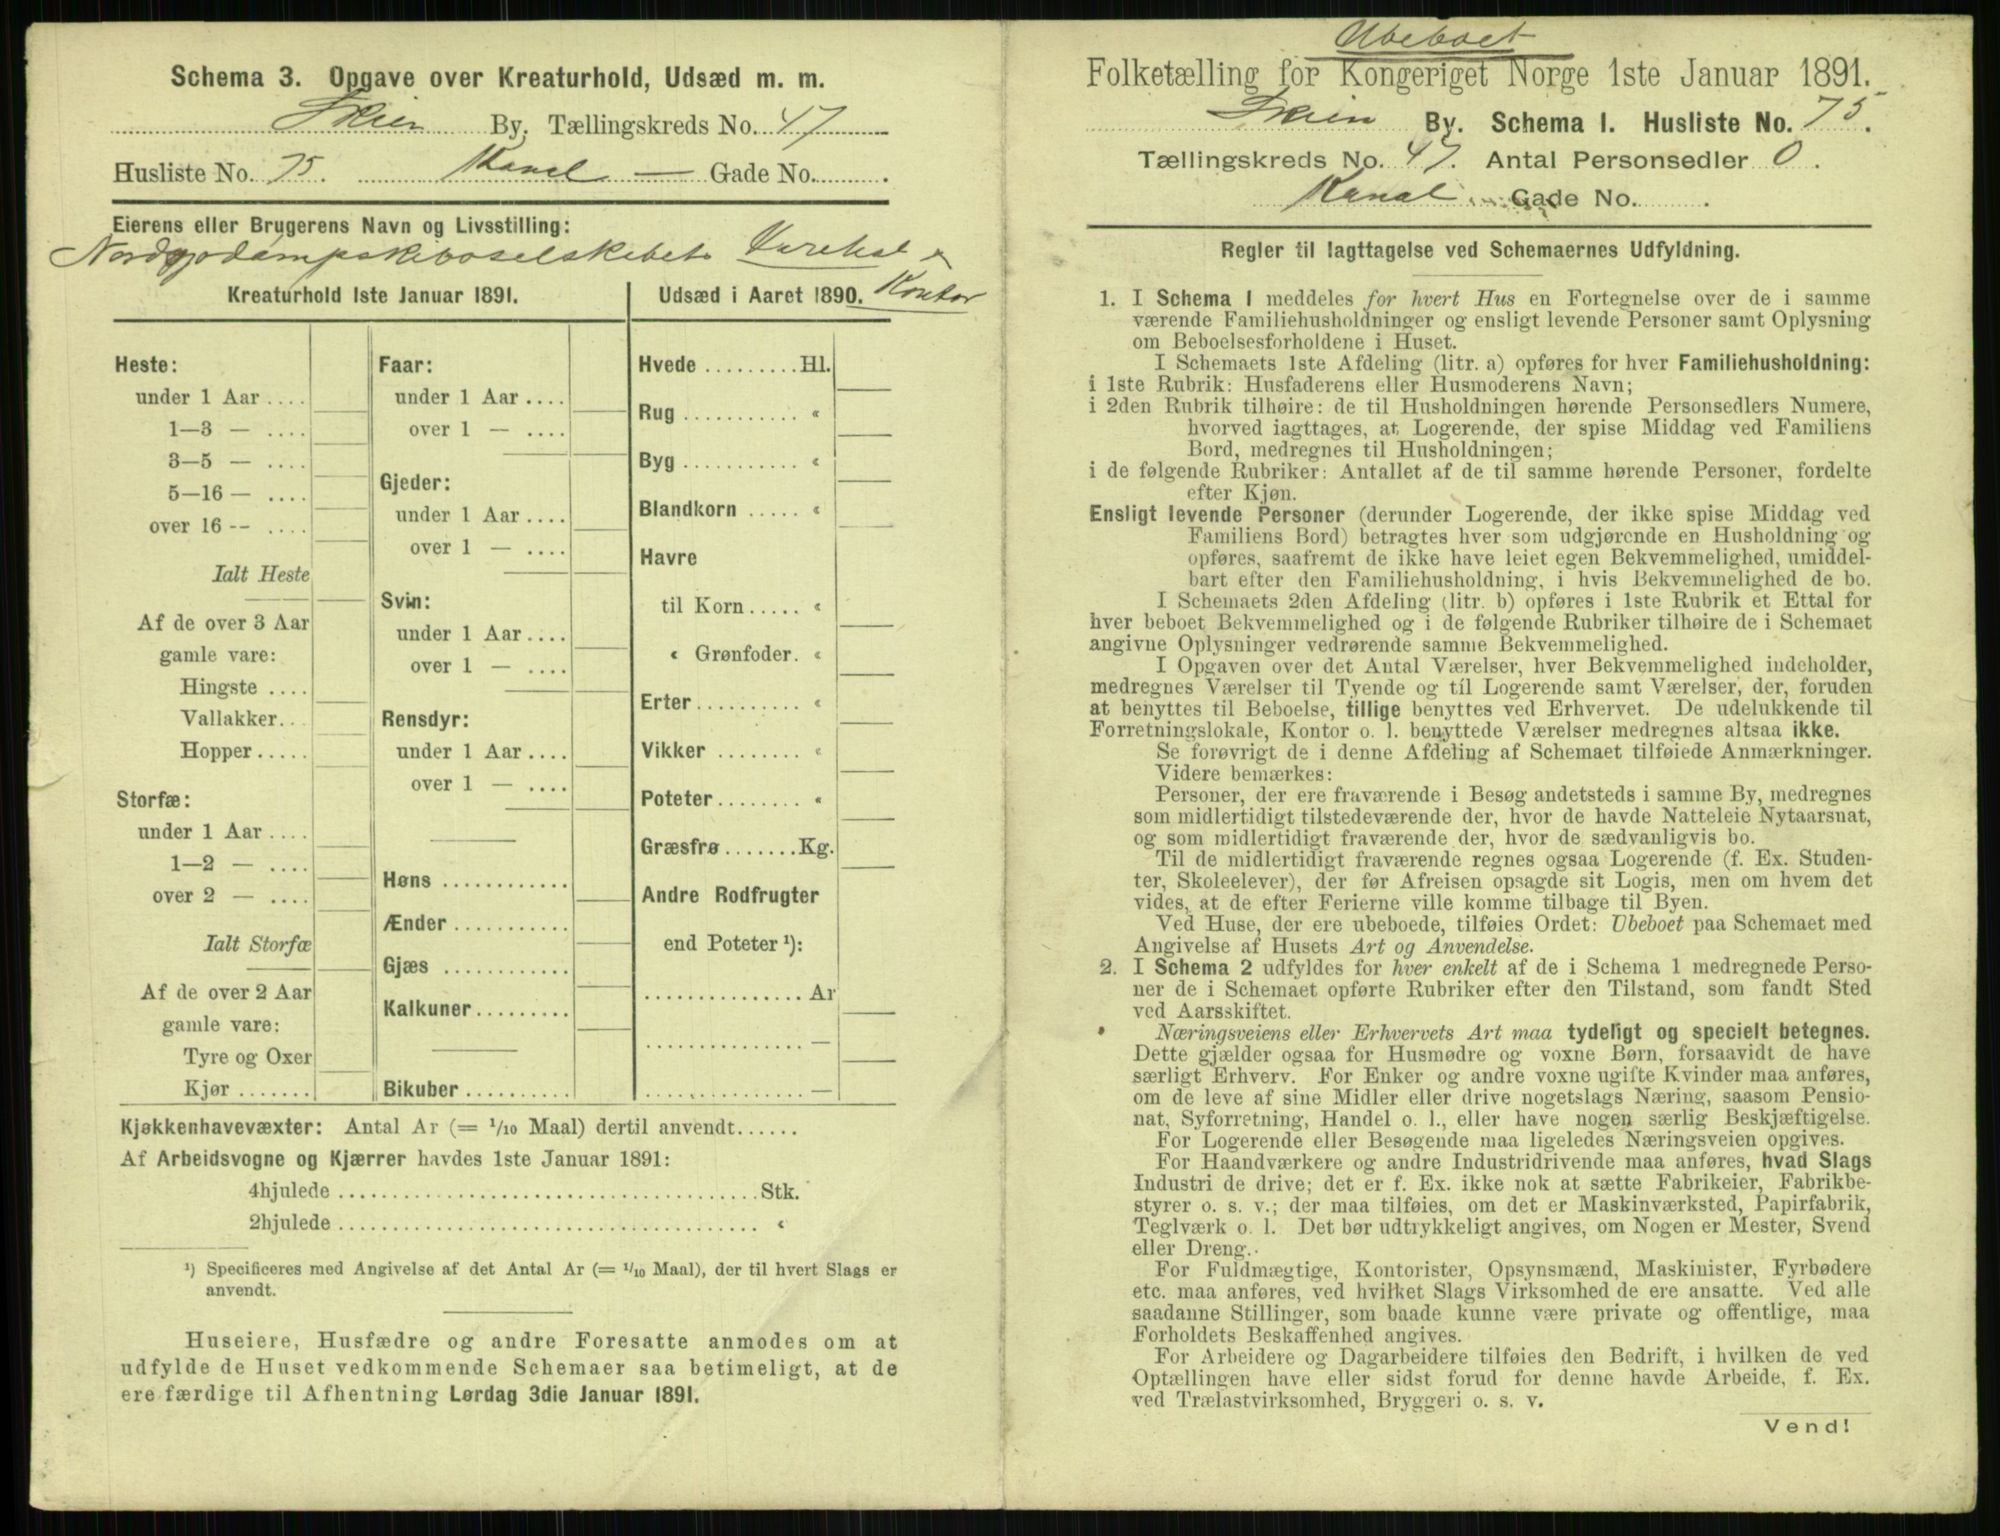 Schema 3. Opgave over Kreaturhold, Udsæd m. m.
Skien By. Tællingskreds No. 47
Husliste No. 75. Kanal — Gade No.
Eierens eller Brugerens Navn og Livsstilling:
Kontor
Kreaturhold 1ste Januar 1891.
Heste:
under 1 Aar ....
1—3 — ....
3—5 — ....
5—16 — ....
over 16 -- ....
Ialt Heste
Af de over 3 Aar
gamle vare:
Hingste ....
Vallakker...
Hopper .....
Storfæ:
under 1 Aar ....
1—2 — ....
over 2 — ....
Ialt Storfæ
Af de over 2 Aar
gamle vare:
Tyre og Oxer
Kjør .......
Faar:
under 1 Aar ....
over 1 — ....
Gjeder:
under 1 Aar ....
over 1 — ....
Svin:
under 1 Aar ....
over 1 — ....
Rensdyr:
under 1 Aar ....
over 1 — ....
Høns ............
Ænder ...........
Gjæs ............
Kalkuner.........
Bikuber ..........
Udsæd i Aaret 1890.
Hvede .........Hl.
Rug ........... «
Byg ............ «
Blandkorn ..... «
Havre
til Korn ..... «
« Grønfoder. «
Erter.......... «
Vikker ........ «
Poteter........ «
Græsfrø .......Kg.
Andre Rodfrugter
end Poteter ¹):
............... Ar
............... —
............... —
Kjøkkenhavevæxter: Antal Ar (= 1/10 Maal) dertil anvendt......
Af Arbeidsvogne og Kjærrer havdes 1ste Januar 1891:
4hjulede ........................................ Stk.
2hjulede ........................................ «
¹) Specificeres med Angivelse af det Antal Ar (= 1/10 Maal), der til hvert Slags er
anvendt.
Huseiere, Husfædre og andre Foresatte anmodes om at
udfylde de Huset vedkommende Schemaer saa betimeligt, at de
ere færdige til Afhentning Lørdag 3die Januar 1891.
Ubeboet
Folketælling for Kongeriget Norge 1ste Januar 1891.
Skien By. Schema 1. Husliste No. 75.
Tællingskreds No. 47. Antal Personsedler 0.
Kanal Gade No.
Regler til Iagttagelse ved Schemaernes Udfyldning.
1. I Schema 1 meddeles for hvert Hus en Fortegnelse over de i samme
værende Familiehusholdninger og ensligt levende Personer samt Oplysning
om Beboelsesforholdene i Huset.
I Schemaets 1ste Afdeling (litr. a) opføres for hver Familiehusholdning:
i 1ste Rubrik: Husfaderens eller Husmoderens Navn;
i 2den Rubrik tilhøire: de til Husholdningen hørende Personsedlers Numere,
hvorved iagttages, at Logerende, der spise Middag ved Familiens
Bord, medregnes til Husholdningen;
i de følgende Rubriker: Antallet af de til samme hørende Personer, fordelte
efter Kjøn.
Ensligt levende Personer (derunder Logerende, der ikke spise Middag ved
Familiens Bord) betragtes hver som udgjørende en Husholdning og
opføres, saafremt de ikke have leiet egen Bekvemmelighed, umiddel-
bart efter den Familiehusholdning, i hvis Bekvemmelighed de bo.
I Schemaets 2den Afdeling (litr. b) opføres i 1ste Rubrik et Ettal for
hver beboet Bekvemmelighed og i de følgende Rubriker tilhøire de i Schemaet
angivne Oplysninger vedrørende samme Bekvemmelighed.
I Opgaven over det Antal Værelser, hver Bekvemmelighed indeholder,
medregnes Værelser til Tyende og til Logerende samt Værelser, der, foruden
at benyttes til Beboelse, tillige benyttes ved Erhvervet. De udelukkende til
Forretningslokale, Kontor o. l. benyttede Værelser medregnes altsaa ikke.
Se forøvrigt de i denne Afdeling af Schemaet tilføiede Anmærkninger.
Videre bemærkes:
Personer, der ere fraværende i Besøg andetsteds i samme By, medregnes
som midlertidigt tilstedeværende der, hvor de havde Natteleie Nytaarsnat,
og som midlertidigt fraværende der, hvor de sædvanligvis bo.
Til de midlertidigt fraværende regnes ogsaa Logerende (f. Ex. Studen-
ter, Skoleelever), der før Afreisen opsagde sit Logis, men om hvem det
vides, at de efter Ferierne ville komme tilbage til Byen.
Ved Huse, der ere ubeboede, tilføies Ordet: Ubeboet paa Schemaet med
Angivelse af Husets Art og Anvendelse.
2. I Schema 2 udfyldes for hver enkelt af de i Schema 1 medregnede Perso-
ner de i Schemaet opførte Rubriker efter den Tilstand, som fandt Sted
ved Aarsskiftet.
Næringsveiens eller Erhvervets Art maa tydeligt og specielt betegnes.
Dette gjælder ogsaa for Husmødre og voxne Børn, forsaavidt de have
særligt Erhverv. For Enker og andre voxne ugifte Kvinder maa anføres,
om de leve af sine Midler eller drive nogetslags Næring, saasom Pensio-
nat, Syforretning, Handel o. l., eller have nogen særlig Beskjæftigelse.
For Logerende eller Besøgende maa ligeledes Næringsveien opgives.
For Haandværkere og andre Industridrivende maa anføres, hvad Slags
Industri de drive; det er f. Ex. ikke nok at sætte Fabrikeier, Fabrikbe-
styrer o. s. v.; der maa tilføies, om det er Maskinværksted, Papirfabrik,
Teglværk o. l. Det bør udtrykkeligt angives, om Nogen er Mester, Svend
eller Dreng.
For Fuldmægtige, Kontorister, Opsynsmænd, Maskinister, Fyrbødere
etc. maa anføres, ved hvilket Slags Virksomhed de ere ansatte. Ved alle
saadanne Stillinger, som baade kunne være private og offentlige, maa
Forholdets Beskaffenhed angives.
For Arbeidere og Dagarbeidere tilføies den Bedrift, i hvilken de ved
Optællingen have eller sidst forud for denne havde Arbeide, f. Ex.
ved Trælastvirksomhed, Bryggeri o. s. v.
Vend!